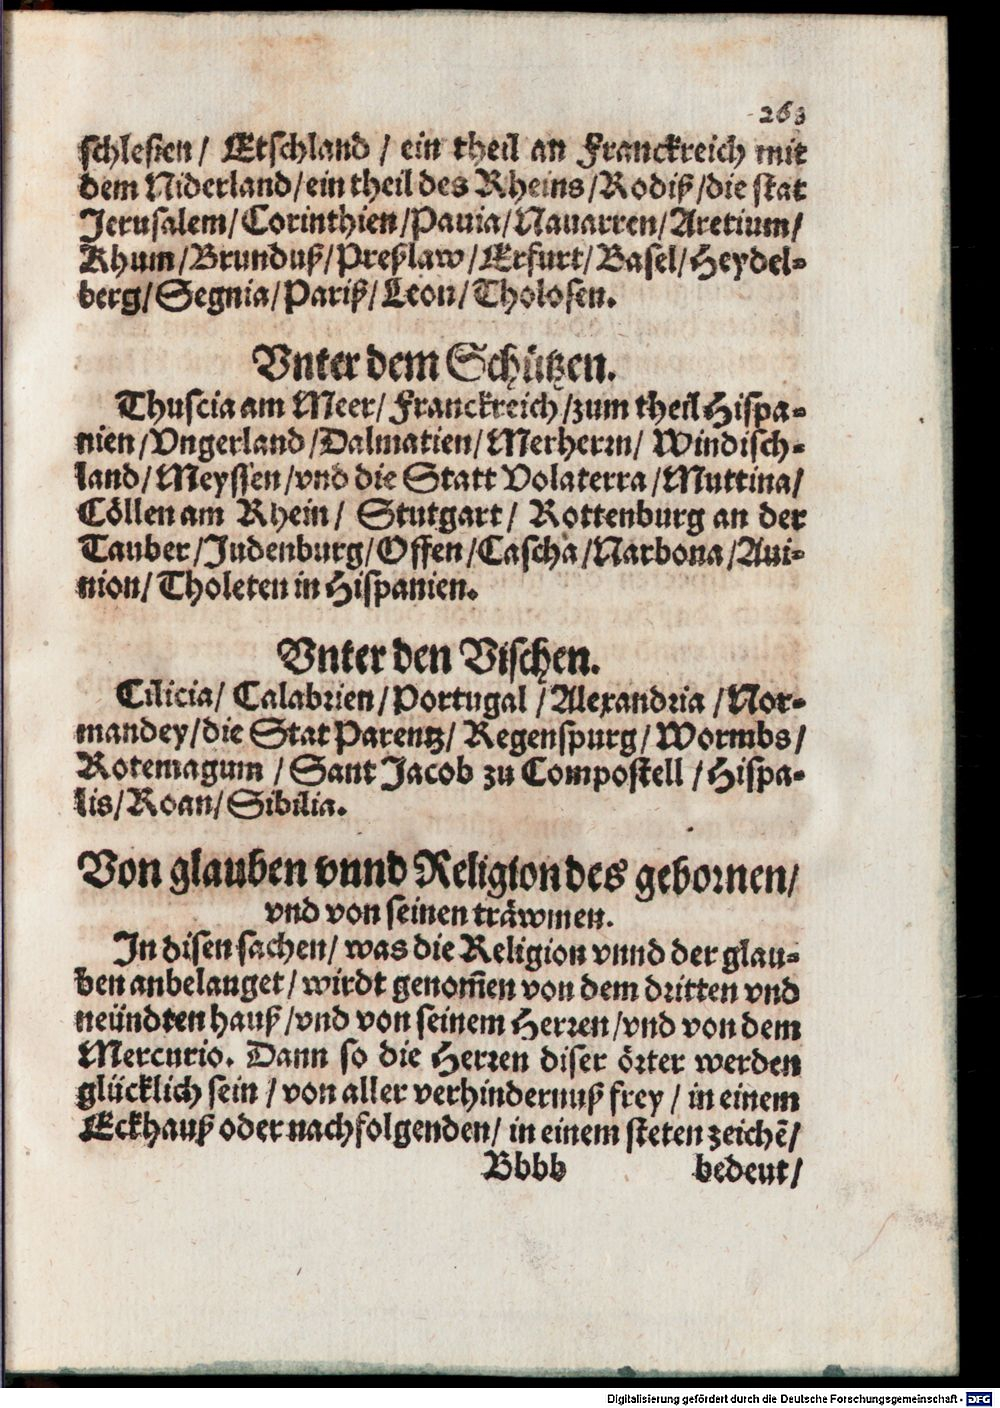 263
schlesien/ Etschland / ein theil an Franckreich mit
dem Niderland/ein theil des Rheins/Rodiß/die stat
Jerusalem/Corinthien/Pauia/Nauarren/Aretium/
Khum/Brunduß/Preßlaw/Erfurt/Basel/Heydel-
berg/Segnia/Pariß/Leon/Tholosen.
Vnter dem Schützen.
Thuscia am Meer/ Franckreich/zum theil Hispa-
nien/Vngerland/Dalmatien/Merherrn/ Windisch-
land/Meyssen/vnd die Statt Volaterra/Muttina/
Cöllen am Rhein/ Stutgart/ Rottenburg an der
Tauber/Judenburg/Offen/Cascha/Narbona/Aui-
nion/Tholeten in Hispanien.
Vnter den Vischen.
Cilicia/ Calabrien/Portugal /Alexandria /Nor-
mandey/die Stat Parentz/ Regenspurg/Wormbs/
Rotemagum / Sant Jacob zu Compostell /Hispa-
lis/Roan/Sibilia.
Von glauben vnnd Religion des gebornen/
vnd von seinen träwmen.
In disen sachen/ was die Religion vnnd der glau-
ben anbelanget/ wirdt genom̃en von dem dritten vnd
neündten hauß/vnd von seinem Herren/vnd von dem
Mercurio. Dann so die Herren diser örter werden
glücklich sein / von aller verhindernuß frey / in einem
Eckhauß oder nachfolgenden/ in einem steten zeichẽ/
Bbbb bedeut/
Digitalisierung gefördert durch die Deutsche Forschungsgemeinschaft - DFG